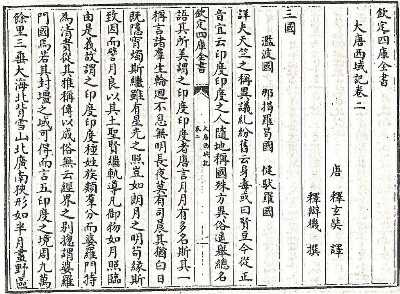 欽定四庫全書
大唐西域記卷二
唐 釋玄奘 譯
釋辯機 撰
三國
濫波國 那揭羅曷國 健馱羅國
詳夫天竺之稱異議糺紛舊云身毒或曰賢豆今從正
音宜云印度印度之人隨地稱國殊方異俗遙舉總名
語其所美謂之印度印度者唐言月月有多名斯其一
欽定四庫全書
大唐西域記
卷二
一
稱言諸羣生輪迴不息無明長夜莫有司晨其猶白日
既隱宵燭斯繼雖有星光之照豈如朗月之明茍緣斯
致因而譬月良以其土聖賢繼軌導凡御物如月照臨
由是義故謂之印度印度種姓族類羣分而婆羅門特
為清貴從其雅稱傳以成俗無云經界之别總謂婆羅
門國焉若其封疆之域可得而言五印度之境周九萬
餘里三垂大海北背雪山北廣南狹形如半月畫野區